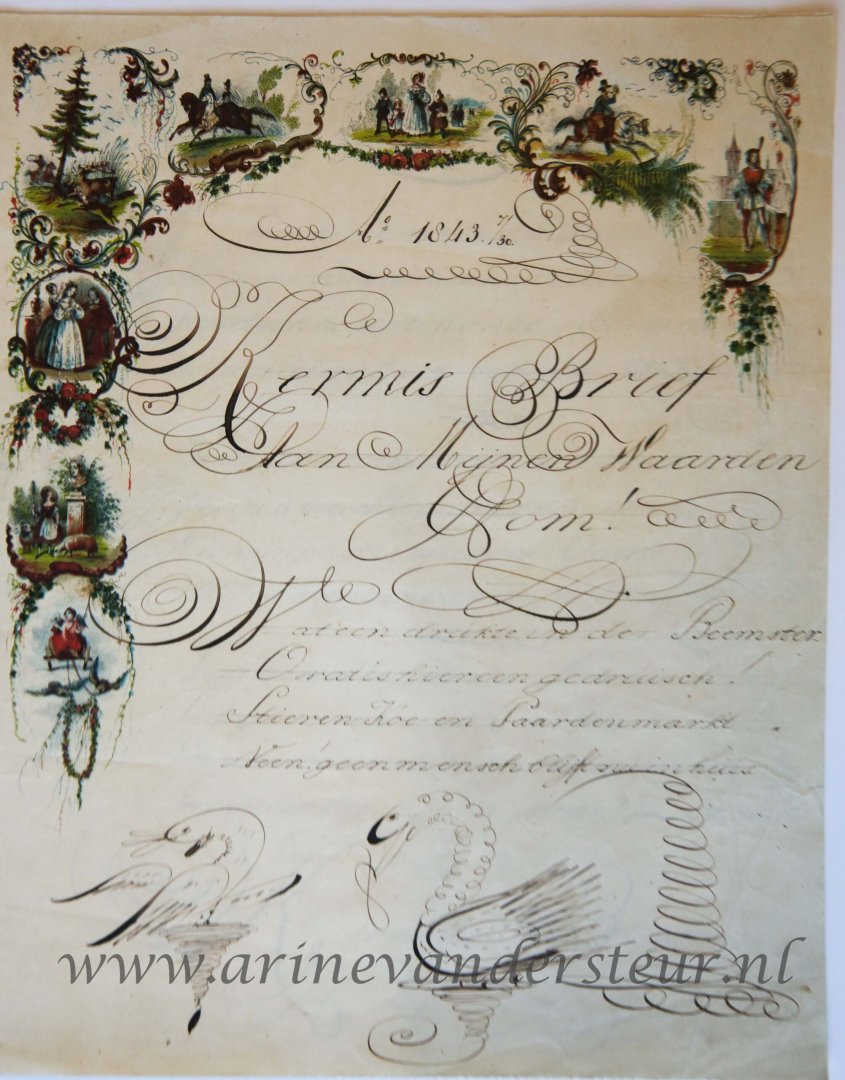 Ao 1843. 7/30.
Kermis Brief
Aan Mijnen Waarden
Oom!
Wat een drukte in der Beemster
O wat is hier een gedruisch!
Stieren Koe en Paardenmarkt
Neen! geen mensch blijft nu in huis
www.arinevandersteur.nl